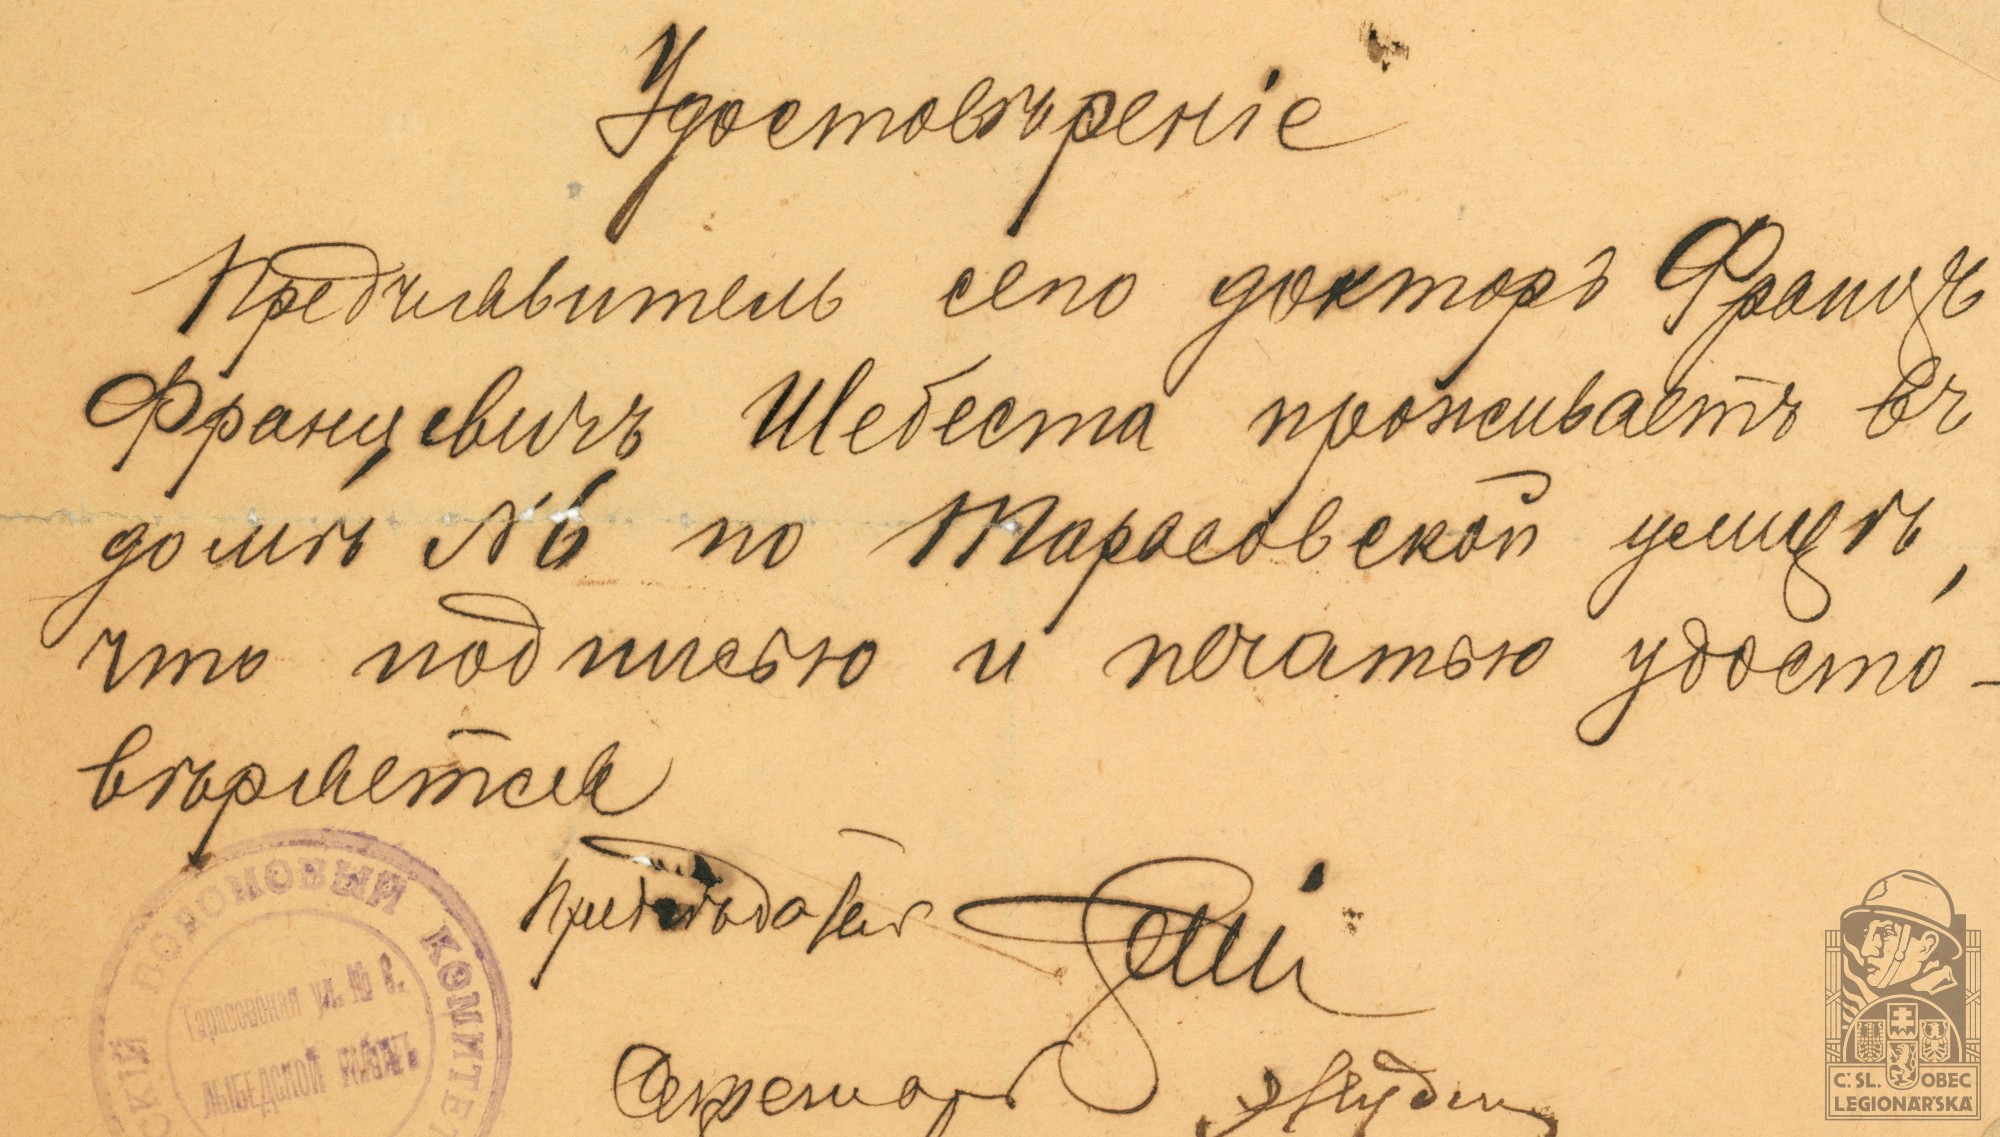 Удостовѣреніе
Предъявитель сего докторъ Францъ
Францевичъ Шебеста проживаетъ въ
домѣ №6 по Тарасовской улицѣ,
что подписью и печатью удосто-
вѣряется
Предсѣдатель
Секретарь
СКІЙ ДОМОВЫЙ КОМИТЕТ
Тарасовская ул. № 6.
ЛЫБЕДСКОЙ
Č. SL. OBEC
LEGIONÁŘSKÁ